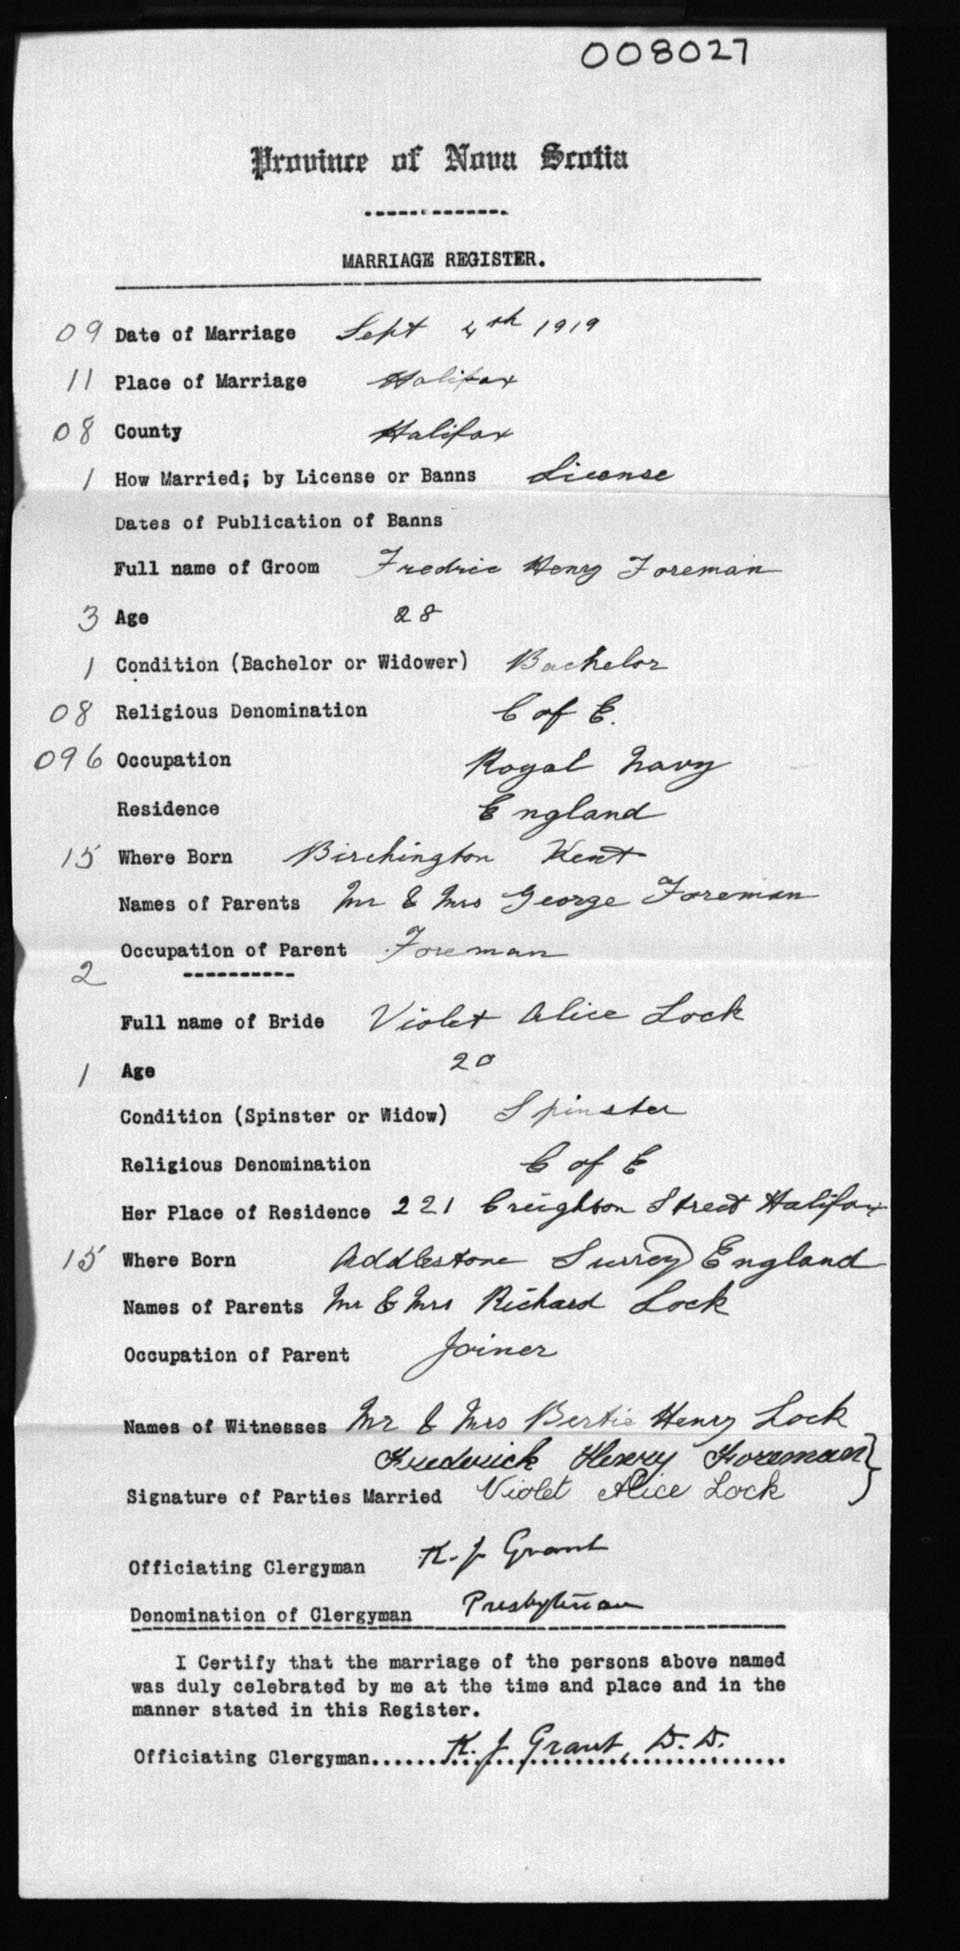 008027
Province of Nova Scotia
MARRIAGE REGISTER.
09 Date of Marriage Sept 4th 1919
11 Place of Marriage Halifax
08 County Halifax
1 How Married; by License or Banns License
Dates of Publication of Banns
Full name of Groom Fredric Henry Foreman
3 Age 28
1 Condition (Bachelor or Widower) Bachelor
08 Religious Denomination C of E.
096 Occupation Royal Navy
Residence England
15 Where Born Birchington Kent
Names of Parents Mr & Mrs George Foreman
Occupation of Parent Foreman
2
Full name of Bride Violet Alice Lock
1 Age 20
Condition (Spinster or Widow) Spinster
Religious Denomination C of E
Her Place of Residence 221 Creighton Street Halifax
15 Where Born Addlestone Surrey England
Names of Parents Mr & Mrs Richard Lock
Occupation of Parent Joiner
Names of Witnesses Mr & Mrs Bertie Henry Lock
Frederick Henry Foreman }
Signature of Parties Married Violet Alice Lock
Officiating Clergyman K. J. Grant
Denomination of Clergyman Presbyterian
I Certify that the marriage of the persons above named
was duly celebrated by me at the time and place and in the
manner stated in this Register.
Officiating Clergyman...... K. J. Grant, D. D.